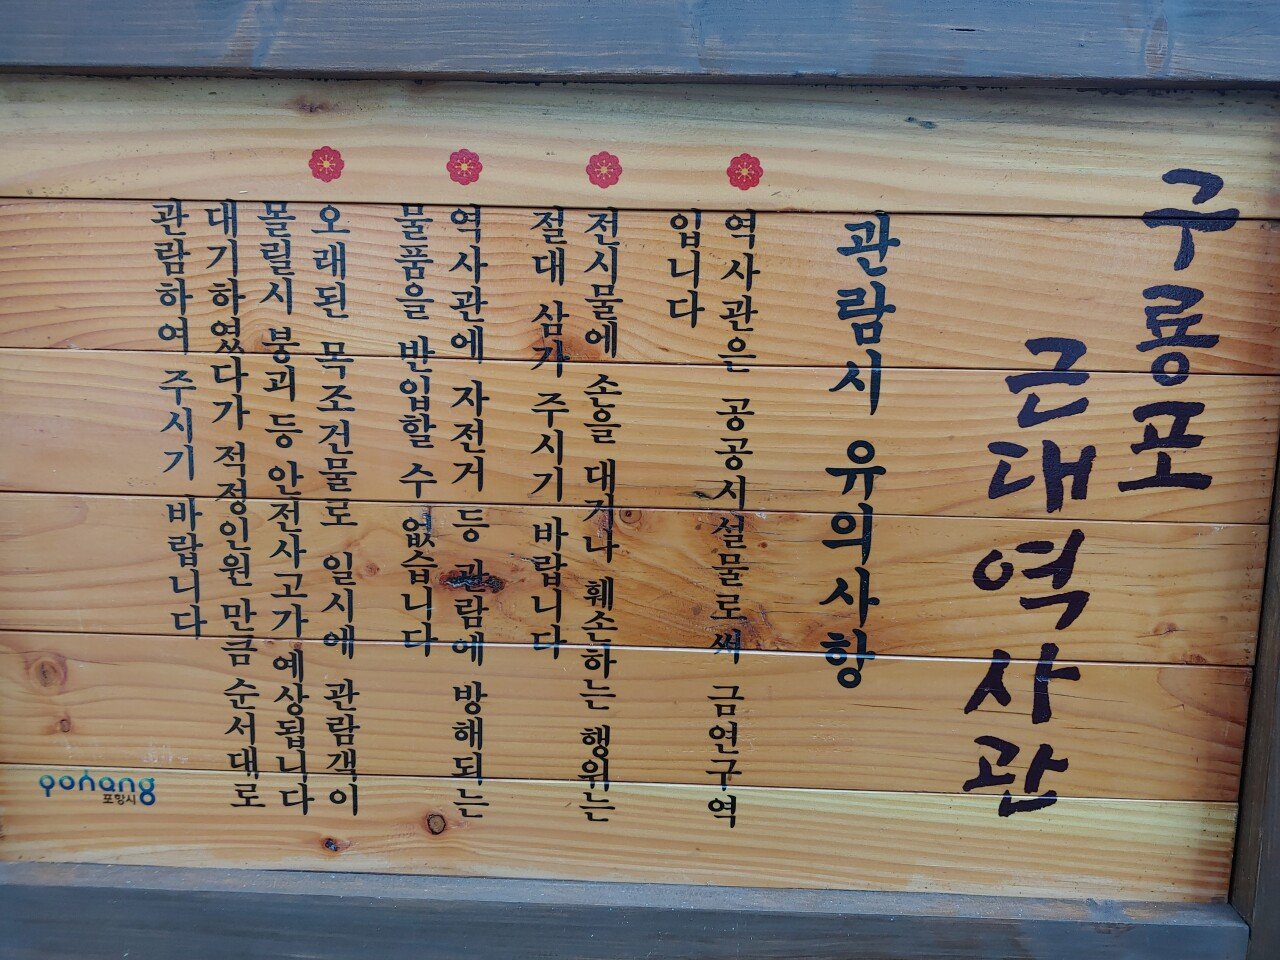 구룡포
근대역사관
관람시 유의사항
역사관은 공공시설물로써 금연구역
입니다
전시물에 손을 대거나 훼손하는 행위는
절대 삼가 주시기 바랍니다
역사관에 자전거 등 관람에 방해되는
물품을 반입할 수 없습니다
오래된 목조건물로 일시에 관람객이
몰릴시 붕괴 등 안전사고가 예상됩니다
대기하였다가 적정인원 만큼 순서대로
관람하여 주시기 바랍니다
pohang
포항시